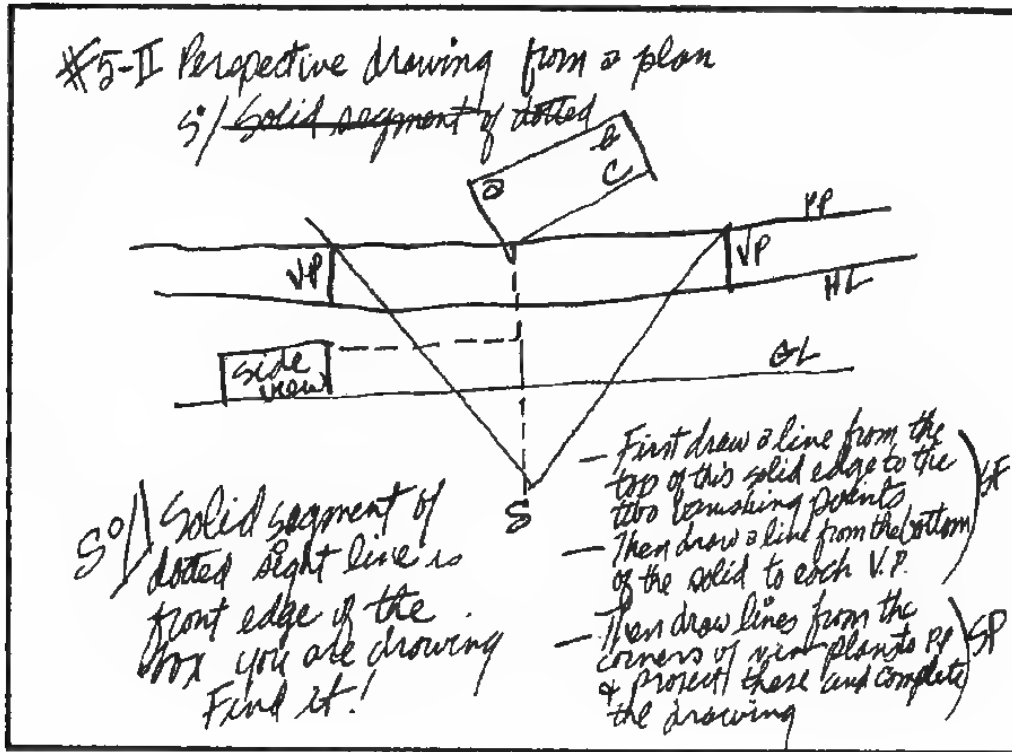 #5-II Perspective drawing from a plan
s°/ Solid segment of dotted
a
b
c
PP
VP
VP
HL
side
view
GL
S
S°/ Solid segment of
dotted sight line is
front edge of the
box you are drawing
Find it!
— First draw a line from the
top of this solid edge to the
two vanishing points
— Then draw a line from the bottom
of the solid to each V.P.
— Then draw lines from the
corners of view plan to PP
& project these and complete
the drawing
SP